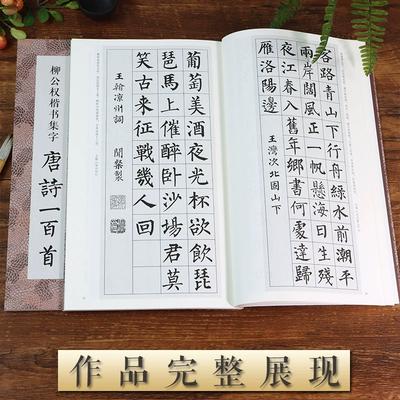 柳公权楷书集字
唐詩一百首
客路青山下行舟綠水前潮平
兩岸闊風正一帆懸海日生殘
夜江春入舊年鄉書何處達歸
雁洛陽邊
王灣次北固山下
葡萄美酒夜光杯欲飲琵
琶馬上催醉卧沙場君莫
笑古来征戰幾人回
王翰凉州詞
作品完整展现